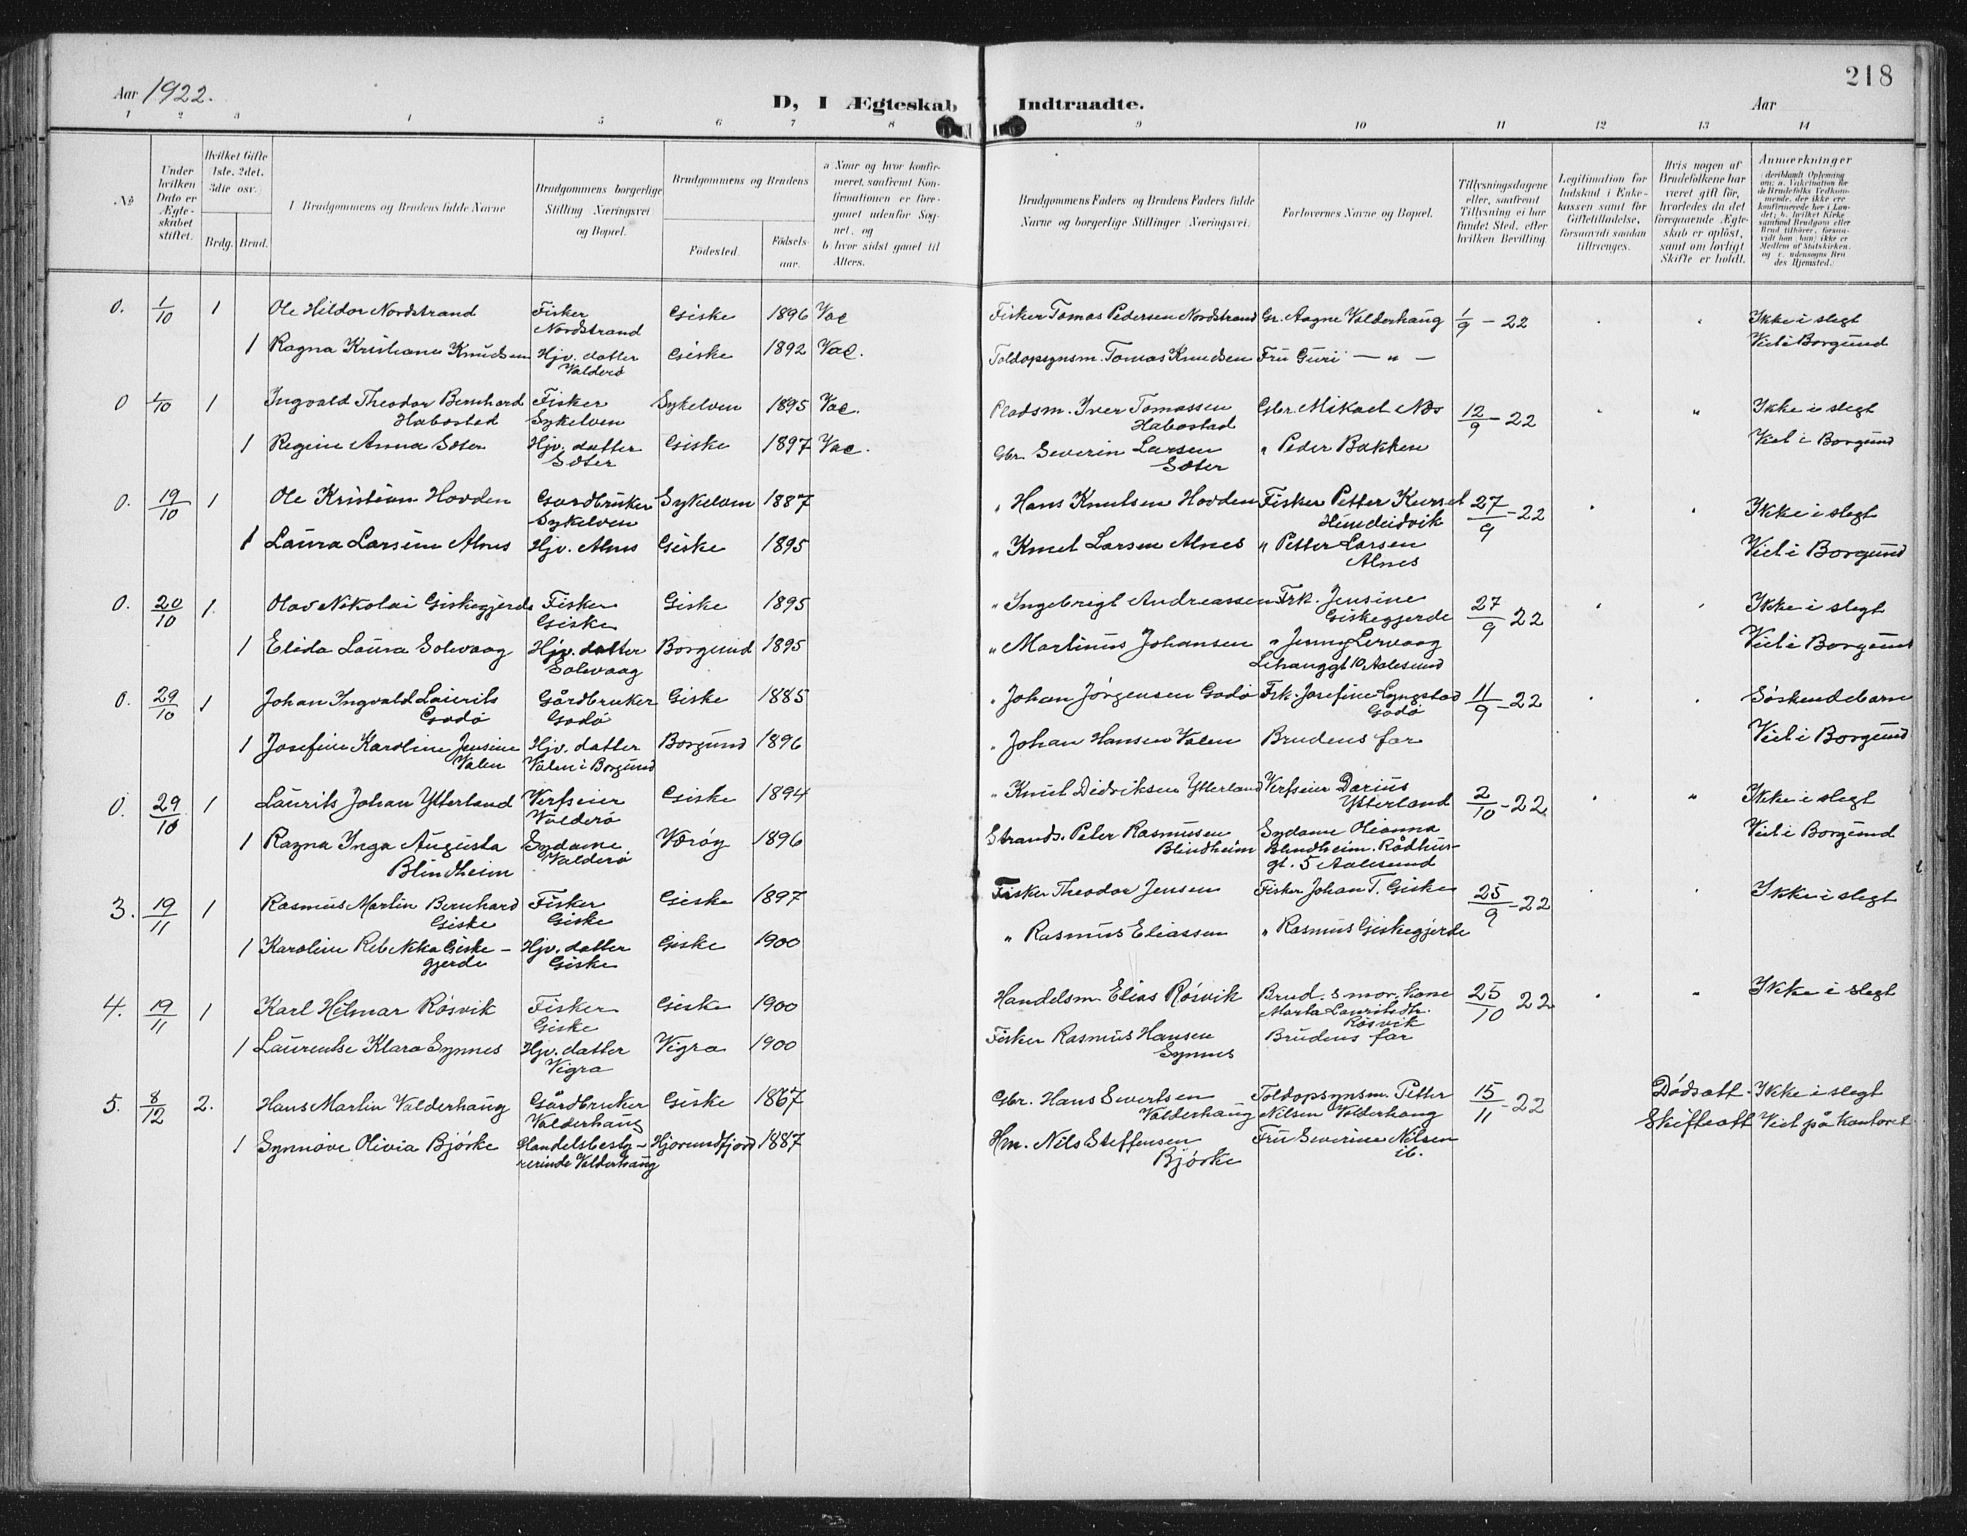 218
Aar 1922.
D, I Ægteskab Indtraadte.
Aar
1 2 3 4 5 6 7 8 9 10 11 12 13 14
No
Under hvilken Dato er Ægteskabet stiftet.
Hvilket Gifte 1ste, 2det, 3die osv.
Brdg. Brud.
Brudgommens og Brudens fulde Navne
Brudgommens borgerlige Stilling Næringsvei og Bopæl.
Brudgommens og Brudens
Fødested.
Fødselsaar.
a Naar og hvor konfirmeret, saafremt Konfirmationen er foregaaet udenfor Sognet, og
b hvor sidst gaaet til Alters.
Brudgommens Faders og Brudens Faders fulde Navne og borgerlige Stillinger (Næringsvei).
Forlovernes Navne og Bopæl.
Tillysningsdagene eller, saafremt Tillysning ei har fundet Sted, efter hvilken Bevilling.
Legitimation for Indskud i Enkekassen samt for Giftetilladelse, forsaavidt saadan tiltrænges.
Hvis nogen af Brudefolkene har været gift før, hvorledes da det foregaaende Ægteskab er opløst, samt om lovligt Skifte er holdt.
Anmærkninger
0. 1/10 1 Ole Hildor Nordstrand Fisker Nordstrand Giske 1896 Vac Fisker Tomas Pedersen Nordstrand Gr. Aagne Valderhaug 1/9 - 22 Ikke i slegt
1 Ragna Kristiane Knudsen Hjv. datter Valderø Giske 1892 Vac. Toldopsynsm. Tomas Knudsen Fru Guri — " — Viet i Borgund
0 1/10 1 Ingvald Theodor Bernhard Habostad Fisker Sykelven Sykelven 1895 Vac. Pladsm. Iver Tomassen Habostad Gbr. Mikael Næs 12/9 - 22 " Ikke i slegt
1 Regine Anna Sæter Hjv. datter Sæter Giske 1897 Vac. Gbr. Severin Larsen Sæter " Peder Bakken Viet i Borgund
0. 19/10 1 Ole Kristian Hovden Gardbruker Sykelven Sykelven 1887 " Hans Knutsen Hovden Fisker Petter Kurset Hundeidvik 27/9 - 22 Ikke i slegt
1 Laura Larsine Alnes Hjv. Alnes Giske 1895 " Knut Larsen Alnes " Petter Larsen Alnes Viet i Borgund
0. 20/10 1. Olav Nikolai Giskegjerde Fisker Giske Giske 1895 " Ingebrigt Andreassen Frk. Jensine Giskegjerde 27/9 22 Ikke i slegt
1 Elida Laura Solevaag Hjv. datter Solvaag Borgund 1895 " Martinus Johansen " Jenny Lervaag Lihauggt 10 Aalesund Viet i Borgund
0. 29/10 1 Johan Ingvald Laurits Godø Gårdbruker Godø Giske 1885 " Johan Jørgensen Godø Frk. Josefine Lyngstad Godø 11/9 - 22 Søskendebarn
1 Josefine Karoline Jensine Valen Hjv. datter Valen i Borgund Borgund 1896 " Johan Hansen Valen Brudens far Viet i Borgund
0. 29/10 1 Laurits Johan Ytterland Verfseier Valderø Giske 1894 " Knut Didriksen Ytterland Verfseier Darius Ytterland 2/10 - 22 " Ikke i slegt
1 Ragna Inga Augusta Blindheim Sydame Valderø Værøy 1896 Strands. Peter Rasmussen Blindheim Sydame Olianna Blindheim. Rådhusgt. 5 Aalesund Viet i Borgund
3. 19/11 1 Rasmus Martin Bernhard Giske Fisker Giske Giske 1897 Fisker Theodor Jensen Fisker Johan T. Giske 25/9 - 22 Ikke i slegt
1 Karoline Rebekka Giskegjerde Hjv. datter Giske Giske 1900 " Rasmus Eliassen " Rasmus Giskegjerde
4. 19/11 1 Karl Hilmar Røsvik Fisker Giske Giske 1900 Handelsm. Elias Røsvik Brud.s mor. Kone Marta Lauritsdtr. Røsvik 25/10 22 " Ikke i slegt
1 Laurentse Klara Synnes Hjv. datter Vigra Vigra 1900 Fisker Rasmus Hansen Synnes Brudens far
5. 8/12 2. Hans Martin Valderhaug Gårdbruker Valderhaug Giske 1867 Gbr. Hans Sivertsen Valderhaug Toldopsynsm. Petter Nilsen Valderhaug 15/11 - 22 Dødsatt. Skifteatt Ikke i slegt Viet på kontoret
1 Synnøve Olivia Bjørke Handelsbestyrerinde Valderhaug Hjørundfjord 1887 Hm. Nils Steffensen Bjørke Fru Severine Nilsen ib.